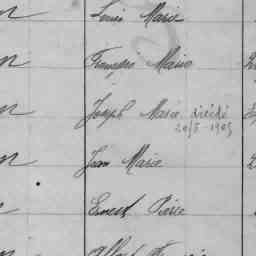 Louis Marie
François Marie
Joseph Marie décédé
20/5 1905
Jean Marie
Ernest Pierre
Albert Francis